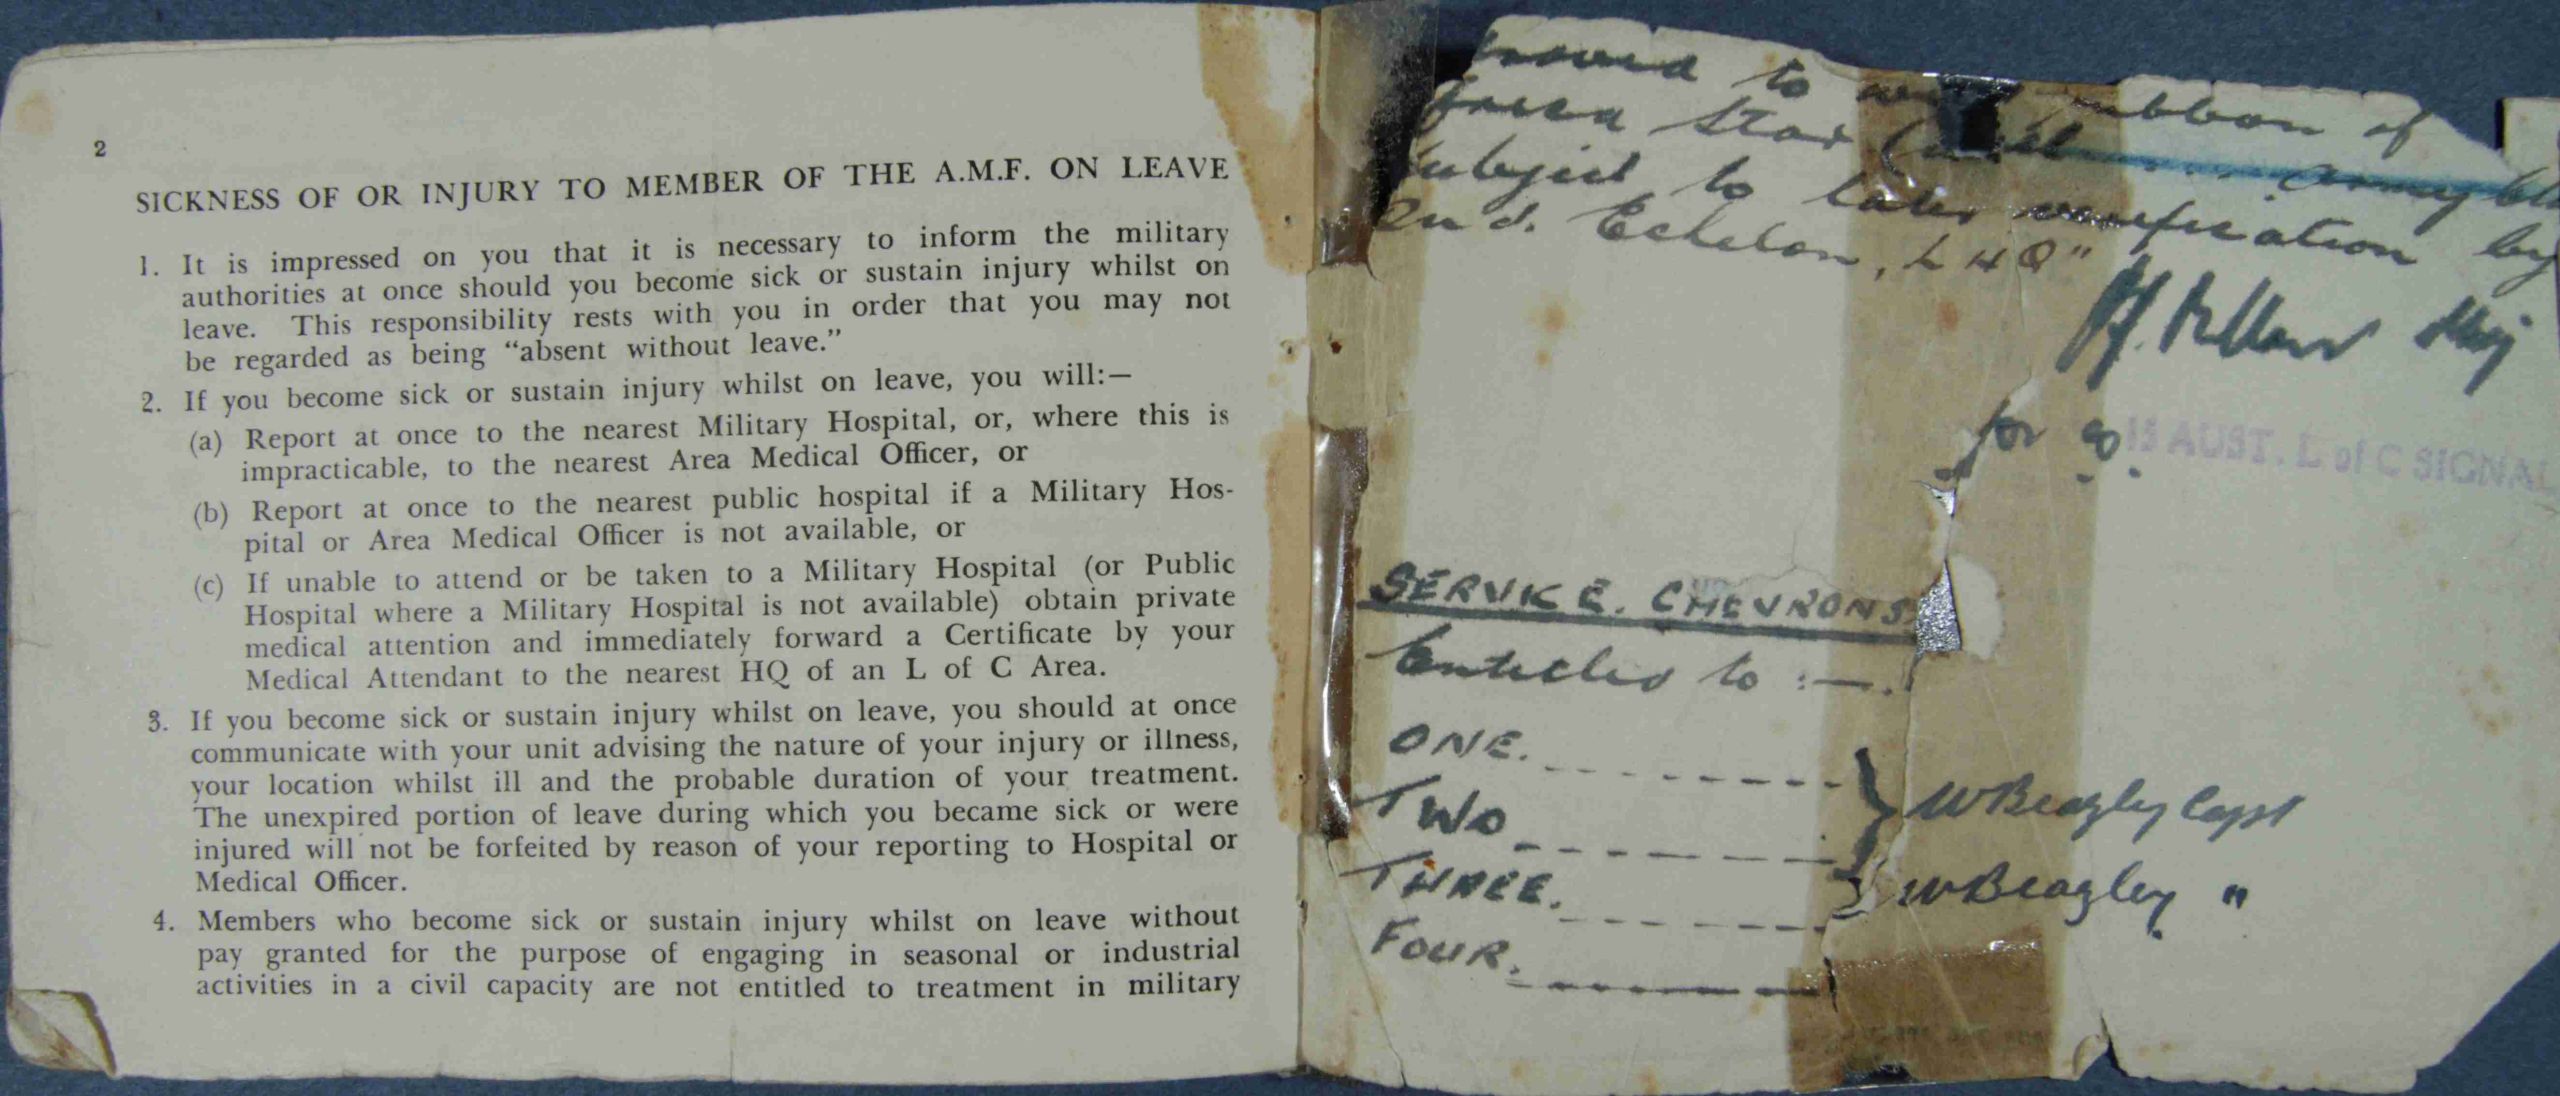 2
SICKNESS OF OR INJURY TO MEMBER OF THE A.M.F. ON LEAVE
1. It is impressed on you that it is necessary to inform the military
authorities at once should you become sick or sustain injury whilst on
leave. This responsibility rests with you in order that you may not
be regarded as being “absent without leave.”
2. If you become sick or sustain injury whilst on leave, you will:—
(a) Report at once to the nearest Military Hospital, or, where this is
impracticable, to the nearest Area Medical Officer, or
(b) Report at once to the nearest public hospital if a Military Hos-
pital or Area Medical Officer is not available, or
(c) If unable to attend or be taken to a Military Hospital (or Public
Hospital where a Military Hospital is not available) obtain private
medical attention and immediately forward a Certificate by your
Medical Attendant to the nearest HQ of an L of C Area.
3. If you become sick or sustain injury whilst on leave, you should at once
communicate with your unit advising the nature of your injury or illness,
your location whilst ill and the probable duration of your treatment.
The unexpired portion of leave during which you became sick or were
injured will not be forfeited by reason of your reporting to Hospital or
Medical Officer.
4. Members who become sick or sustain injury whilst on leave without
pay granted for the purpose of engaging in seasonal or industrial
activities in a civil capacity are not entitled to treatment in military
to ribbon of
Africa Star Army
subject to later verification by
2nd. Echelon, LHQ"
Maj
for
AUST. L of C SIGNAL
SERVICE. CHEVRONS
Entitled to :—.
ONE.
TWO
THREE.
FOUR.
WBeagley Capt
WBeagley "